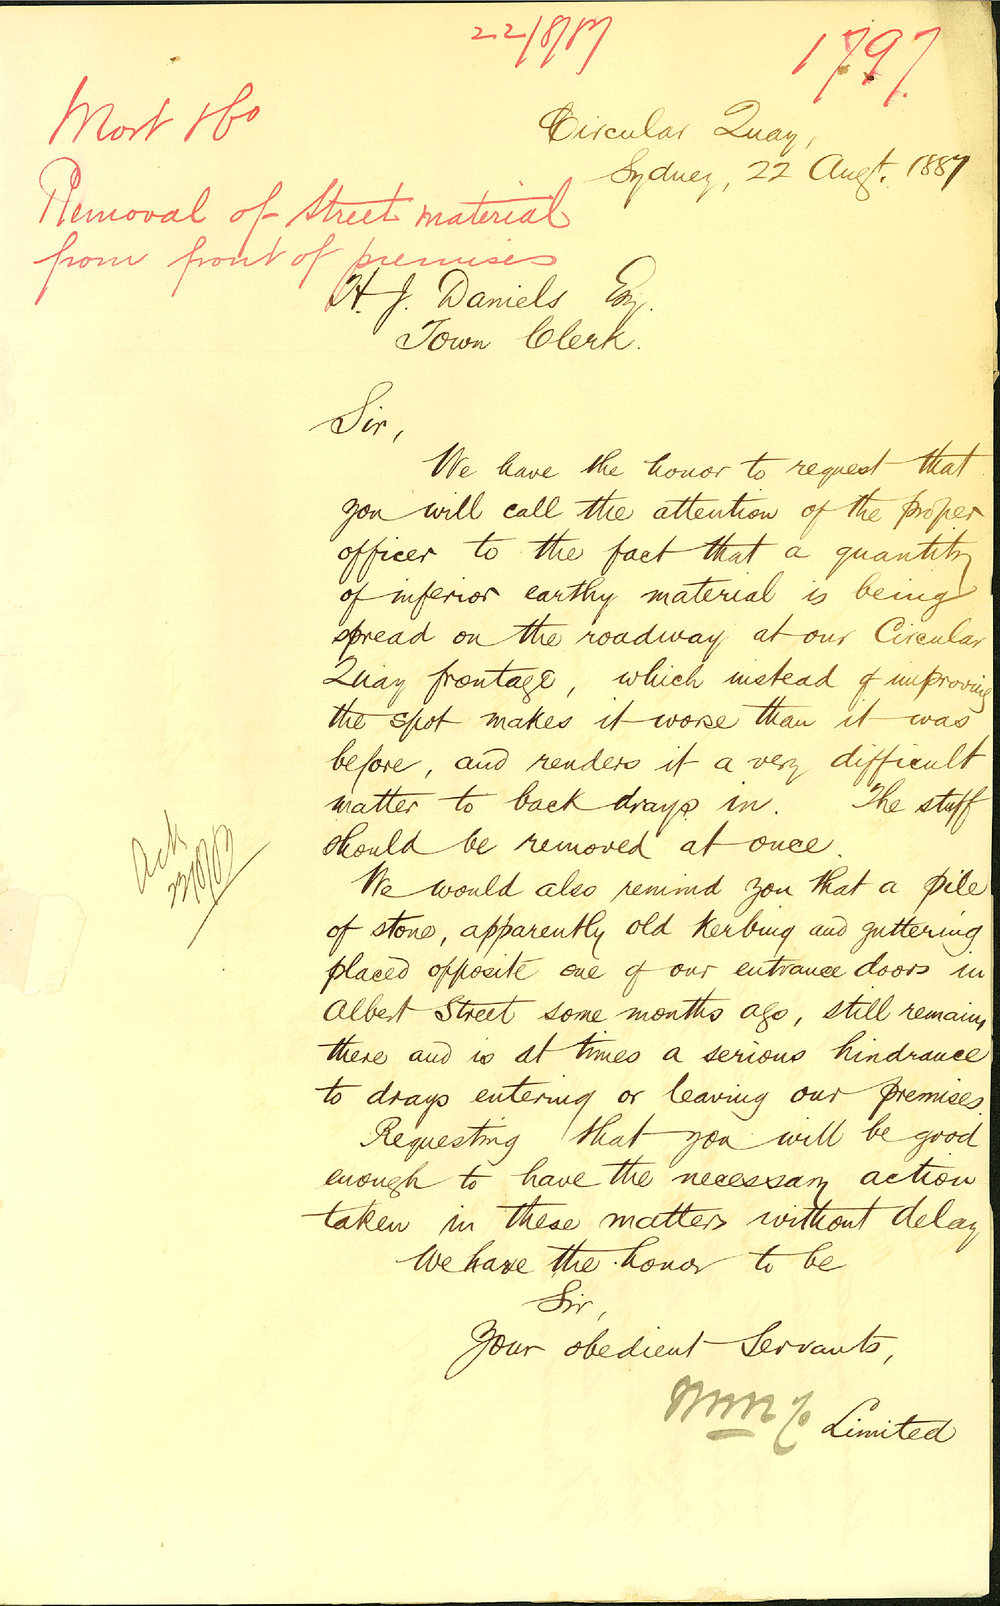 22/8/87
1797.
Mort & Co
Removal of Street material
from front of premises
Circular Quay,
Sydney, 22 Augt. 1887
H. J. Daniels Esq.
Town Clerk.
Sir,
We have the honor to request that
you will call the attention of the proper
officer to the fact that a quantity
of inferior earthy material is being
spread on the roadway at our Circular
Quay frontage, which instead of improving
the spot makes it worse than it was
before, and renders it a very difficult
matter to back drays in. The stuff
should be removed at once.
We would also remind you that a pile
of stone, apparently old kerbing and guttering
placed opposite one of our entrance doors in
Albert Street some months ago, still remains
there and is at times a serious hindrance
to drays entering or leaving our premises.
Requesting that you will be good
enough to have the necessary action
taken in these matters without delay
We have the honor to be
Sir,
Your obedient Servants,
Limited
Ack
23/8/87